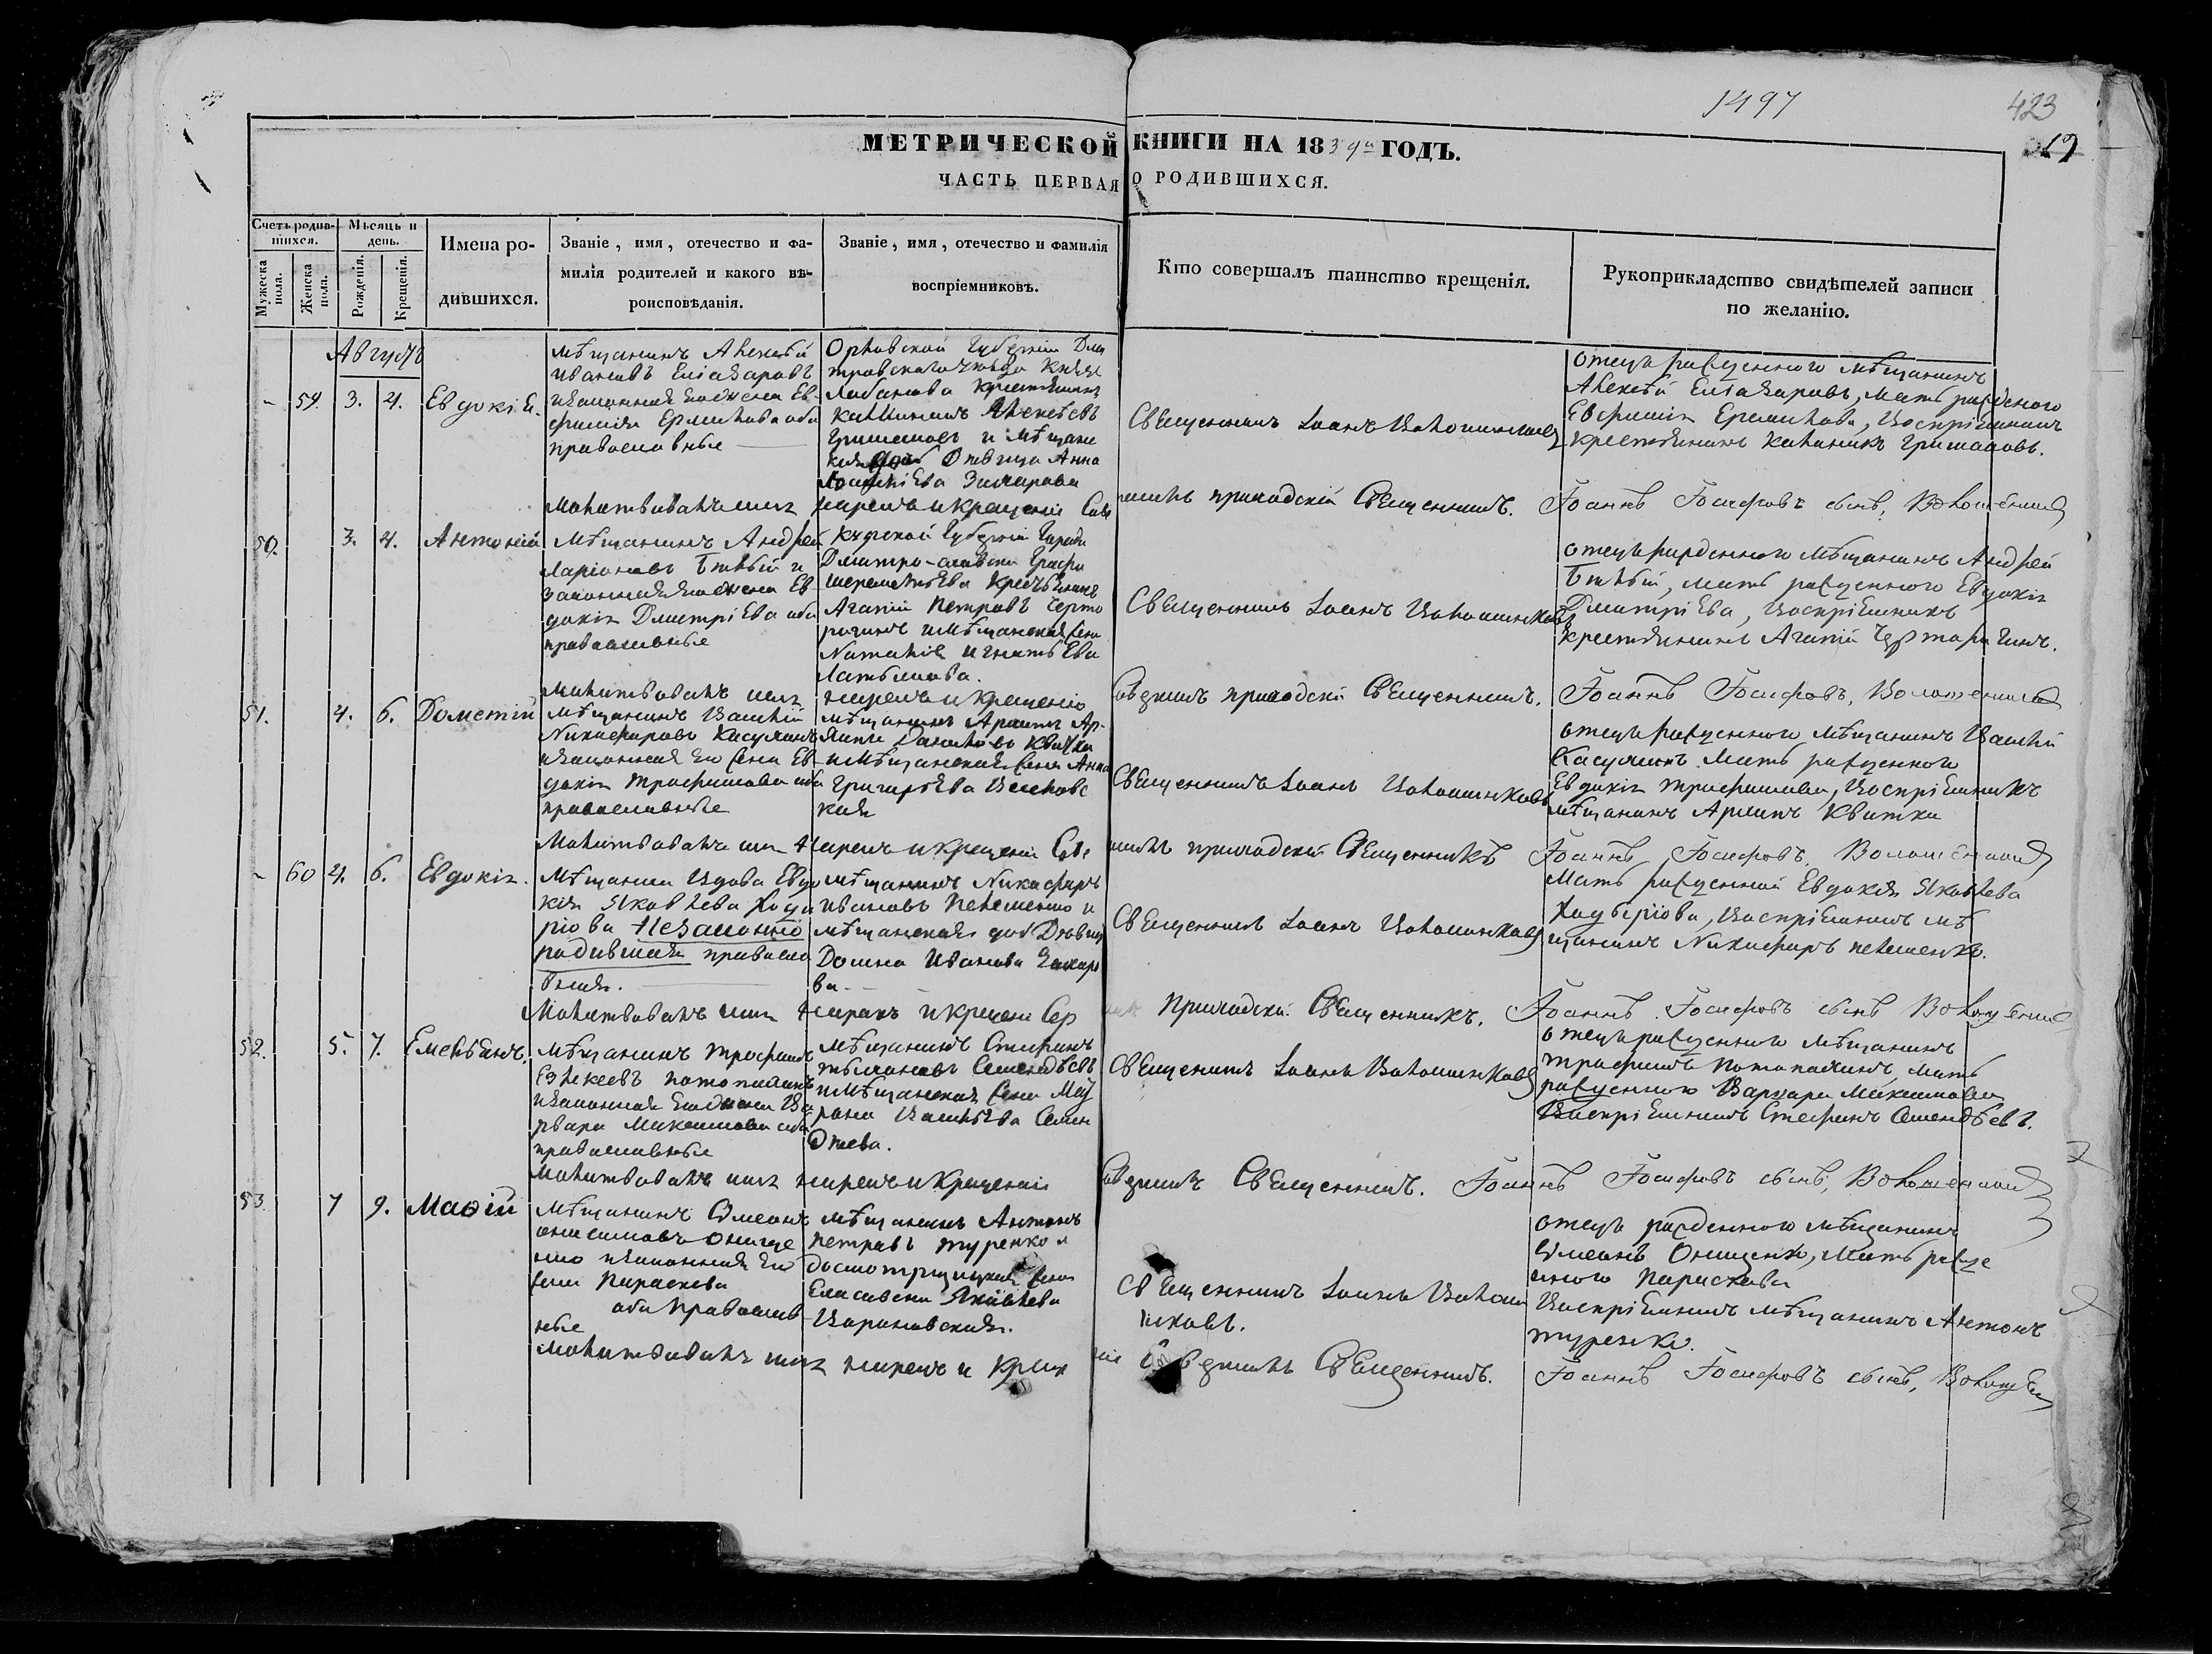 1497
423
19
МЕТРИЧЕСКОЙ КНИГИ НА 1839й ГОДЪ.
ЧАСТЬ ПЕРВАЯ О РОДИВШИХСЯ.
Счетъ родившихся.
Мужеска пола.
Женска пола.
Мѣсяцъ и день.
Рожденія.
Крещенія.
Имена родившихся.
Званіе, имя, отечество и фа-
милія родителей и какого вѣ-
роисповѣданія.
Званіе, имя, отечество и фамилія
воспріемниковъ.
Кто совершалъ таинство крещенія.
Рукоприкладство свидѣтелей записи
по желанію.
Августъ
59. 3. 4. Евдокія.
мѣщанинъ Алексѣй
Ивановъ Еліазаровъ
и законная его жена Ев-
фимія Ермилова оба
православные
Орловской Губерніи Дми
тровскаго уѣзда Князя
Лобанова крестьянинъ
Калинникъ Алексѣевъ
Гришановъ и мѣщанс
кая дочь Дѣвица Анна
Захарова
Священникъ Іоаннъ Волошиновъ
отецъ рожденного мѣщанинъ
Алексѣй Еліазаровъ, мать рожденого
Евфимія Еремилова, воспріемникъ
крестьянинъ Калиникъ Гришановъ.
Молитвовалъ имя нарекъ и крещеніе Сове
ршилъ приходскій Священникъ. Іоаннъ Іосифовъ сынъ, Волошеновъ
50. 3. 4. Антоній
Мѣщанинъ Андрей
Ларіоновъ Бѣлый и
законная его жена Ев-
докія Дмитріева оба
православные
Курской Губерніи Города
Дмитро-славска Графа
Шереметьева Крестьянинъ
Агапій Петровъ Черто
рогинъ и мѣщанская жена
Наталія Игнатьева
Священникъ Іоаннъ Волошиновъ
отецъ рожденного мѣщанинъ Андрей
Бѣлый, мать рожденного Евдокія
Дмитріева, воспріемникъ
крестьянинъ Агапій Черторогинъ.
Молитвовалъ имя нарекъ и крещеніе
Совершилъ приходскій Священникъ. Іоаннъ Іосифовъ, Волошеновъ
51. 4. 6. Дометій
мѣщанинъ Василій
Никифоровъ Касулинъ
и законная его жена Ев-
докія Трофимова оба
православные
мѣщанинъ Архипъ
Даниловъ Квитка
и мѣщанская жена Анна
Григорьева
Священникъ Іоаннъ Волошиновъ
отецъ рожденного мѣщанинъ Василій
Касулинъ мать рожденного
Евдокія Трофимова, воспріемникъ
мѣщанинъ Архипъ Квитка
Молитвовалъ имя нарекъ и крещеніе Сове
ршилъ приходскій Священникъ Іоаннъ Іосифовъ, Волошеновъ
60 4. 6. Евдокія.
Мѣщанка Вдова Евдо
кія Яковлева
Незаконно
родившая правосла
вная.
мѣщанинъ Никифоръ
Ивановъ Пелешенко и
мѣщанская дочь Дѣвица
Домна Иванова Захаро
ва
Священникъ Іоаннъ Волошиновъ
Мать рожденной Евдокія Яковлева
воспріемникъ мѣ
щанинъ Никифоръ Пелешенко.
Молитвовалъ имя нарекъ и крещеніе
Приходскій Священникъ. Іоаннъ Іосифовъ сынъ Волошеновъ
52. 5. 7. Емельянъ.
мѣщанинъ Трофимъ
Езекеевъ Потопахинъ
и законная его жена Ва
рвара Максимова оба
православные
мѣщанинъ Стефанъ
Семендѣевъ
и мѣщанская жена
Васильева Семен
дѣева.
Священникъ Іоаннъ Волошиновъ
отецъ рожденного мѣщанинъ
Трофимъ Потопахинъ, мать
рожденного Варвара Максимова
Воспріемникъ Стефанъ Семендѣевъ.
Молитвовалъ имя нарекъ и крещеніе
Совершилъ Священникъ. Іоаннъ Іосифовъ сынъ, Волошеновъ
53 7 9. Маѳій
Мѣщанинъ Симеонъ
Онисимовъ Онище
нко и законная его
жена Параскева
оба православ
ные
мѣщанинъ Антонъ
Петровъ Туренко и
жена
Елисавета Яковлева
Вороновская.
Священникъ Іоаннъ Волоши
новъ.
отецъ рожденного мѣщанинъ
Симеонъ Онищенко, мать рожде
нного Параскева
Воспріемникъ мѣщанинъ Антонъ
Туренко.
Молитвовалъ имя нарекъ и креще
ніе Совершилъ Священникъ. Іоаннъ Іосифовъ сынъ, Волошеновъ